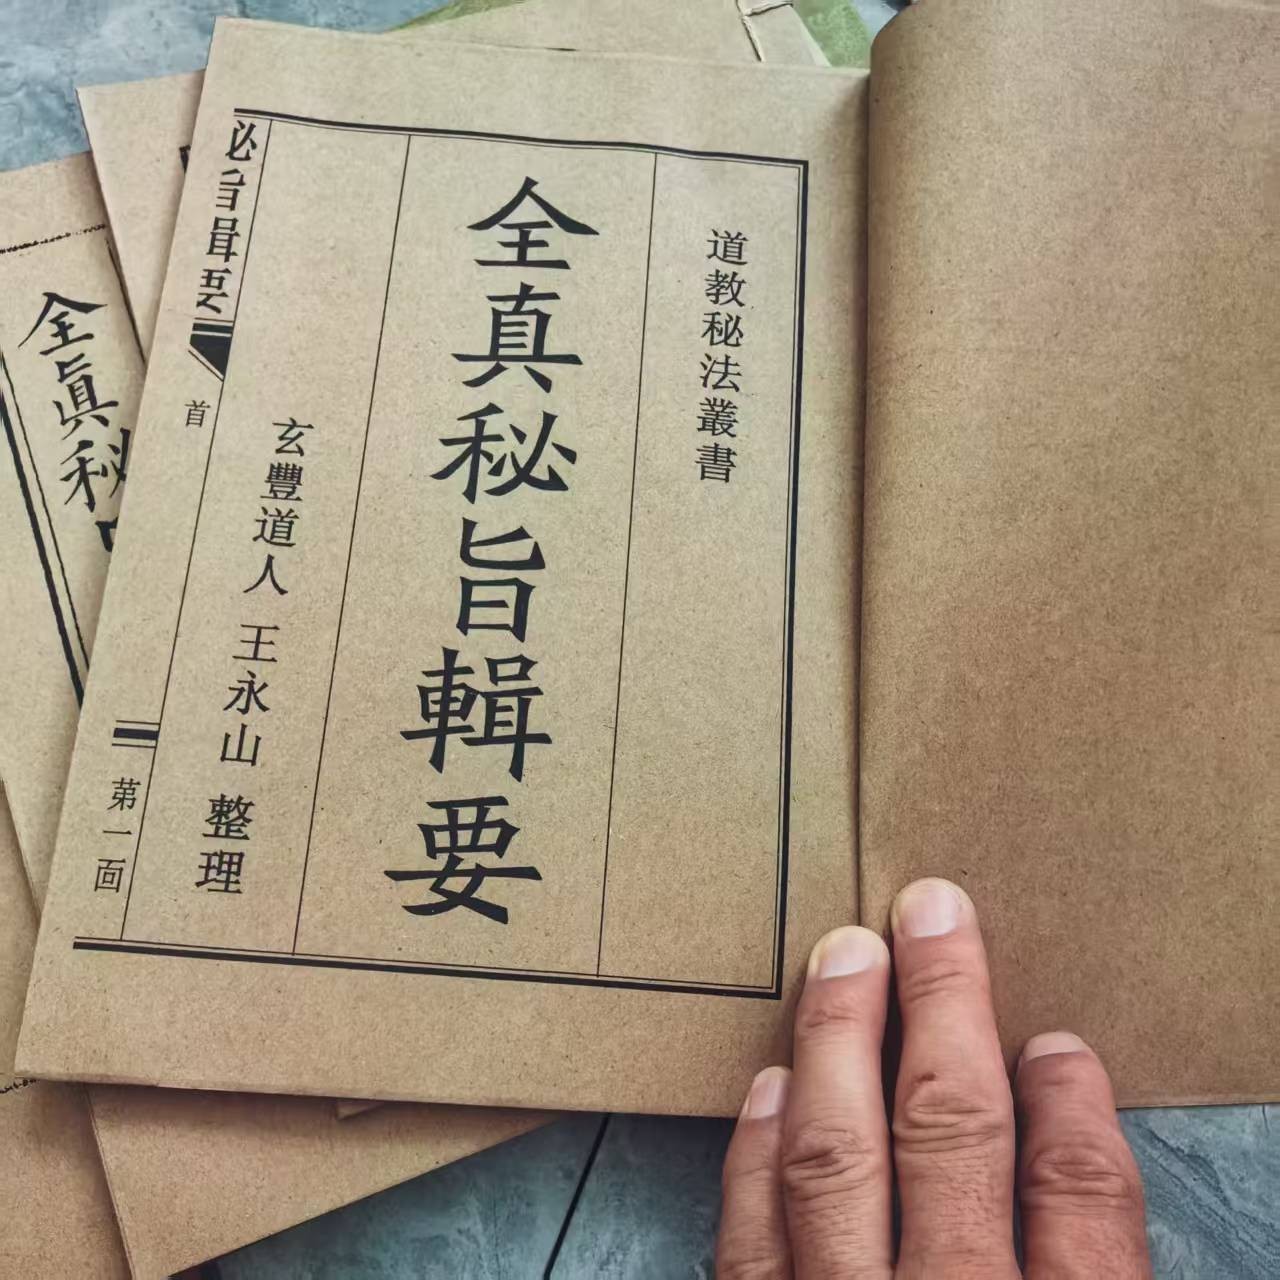 道教秘法叢書
全真秘旨輯要
玄豐道人 王永山 整理
秘旨輯要
首
第一面
全眞秘